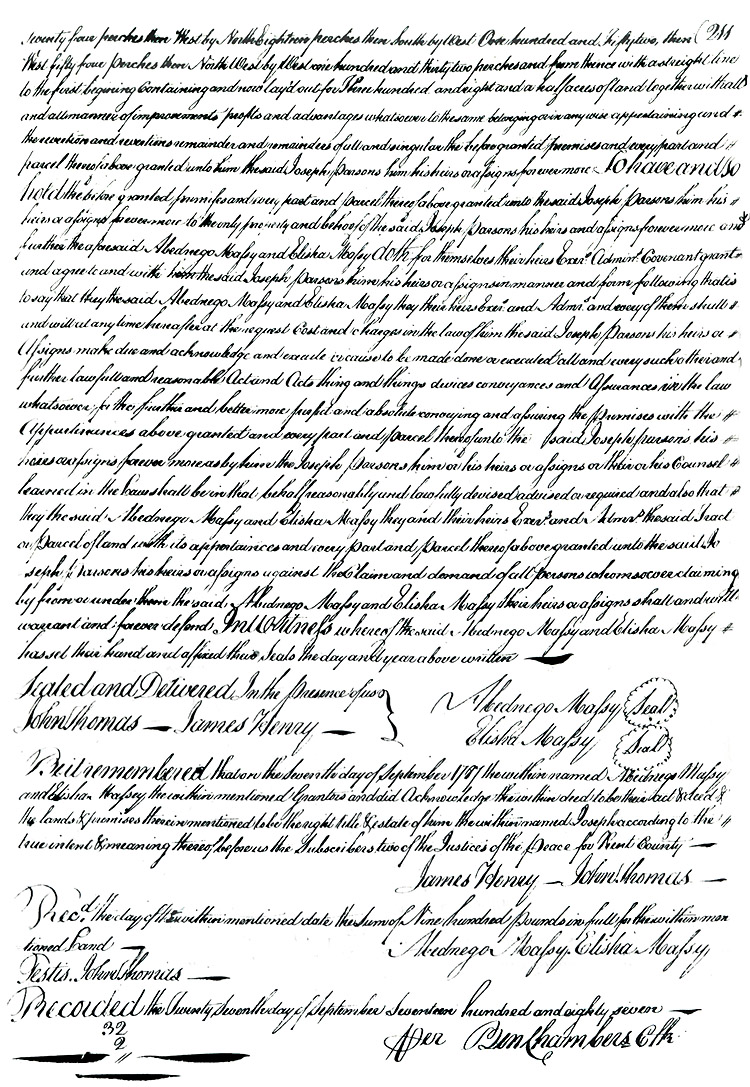 seventy four perches then West by North Eighteen perches then South by West One hundred and fifty two, then (211
West fifty four Perches then North West by West one hundred and thirty two perches and from thence with a streight line
to the first begining Containing and now lay'd out for Three hundred and eight and a half acres of land together with all
and all manner of improvements profits and advantages whatsoever to the same belonging or in any wise appertaining and #
the revertion and revertions remainder and remainders of all and singular the before granted premises and every part and #
parcel thereof above granted unto him the said Joseph Parsons him his heirs or assigns for ever more To have and to
hold the before granted premises and every part and Parcel thereof above granted unto the said Joseph Parsons him his #
heirs or assigns forever more to the only property and behoof of the said Joseph Parsons his heirs and assigns forever more and
further the aforesaid Abednego Massy and Elisha Massy doth for themselves their heirs Exer.s Admin.s Covenant grant
and agree to and with him the said Joseph Parsons him his heirs or assigns in manner and form following that is
to say that they the said Abednego Massy and Elisha Massy they their heirs Exer.s and Adm.s and every of them shall #
and will at any time hereafter at the request Cost and charges in the law of him the said Joseph Parsons his heirs or #
Assigns make due and acknowledge and execute or cause to be made done or executed all and every such other and
further lawfull and reasonable Act and Acts thing and things divices conveyances and Assurances in the law
whatsoever for the further and better more profit and absolute conveying and assuring the Premises with the #
Appurtinances above granted and every part and Parcel thereof unto the said Joseph Parsons his #
heirs or assigns forever more as by him the Joseph Parsons him or his heirs or assigns or their or his Counsel #
learned in the Laws shall be in that behalf reasonably and lawfully devised advised or required and also that #
they the said Abednego Massy and Elisha Massy they and their heirs Exer.s and Admr.s the said Tract
or Parcel of land with its appertainces and every part and Parcel thereof above granted unto the said Jo
seph Parsons his heirs or assigns against the Claim and demand of all Persons whomsoever claiming
by from or under them the said Abednego Massy and Elisha Massy their heirs or assigns shall and will
warrant and forever defend. In Witness whereof the said Abednego Massy and Elisha Massy #
has set their hand and affixed their Seals the day and year above written
Sealed and Delivered In the Presence of us } Abednego Massy Seal
John Thomas — James Henry — Elisha Massy Seal
Be it remembered that on the Seventh day of September 1787 the within named Abednego Massy
and Elisha Massey the within mentioned Grantors and did Acknowledge the within deed to be their act & deed &
the lands & premises therein mentioned to be the right title & estate of him the within named Joseph according to the #
true intent & meaning thereof before us the Subscribers two of the Justices of the Peace for Kent County —
James Henry — John Thomas —
Rec.d the day of the within mentioned date the Sum of Nine hundred Pounds in full for the within men
tioned Land — Abednego Massy. Elisha Massy
Testis John Thomas —
Recorded the Twenty Seventh day of September Seventeen hundred and eighty seven —
32
2
Per Ben Chambers Clk